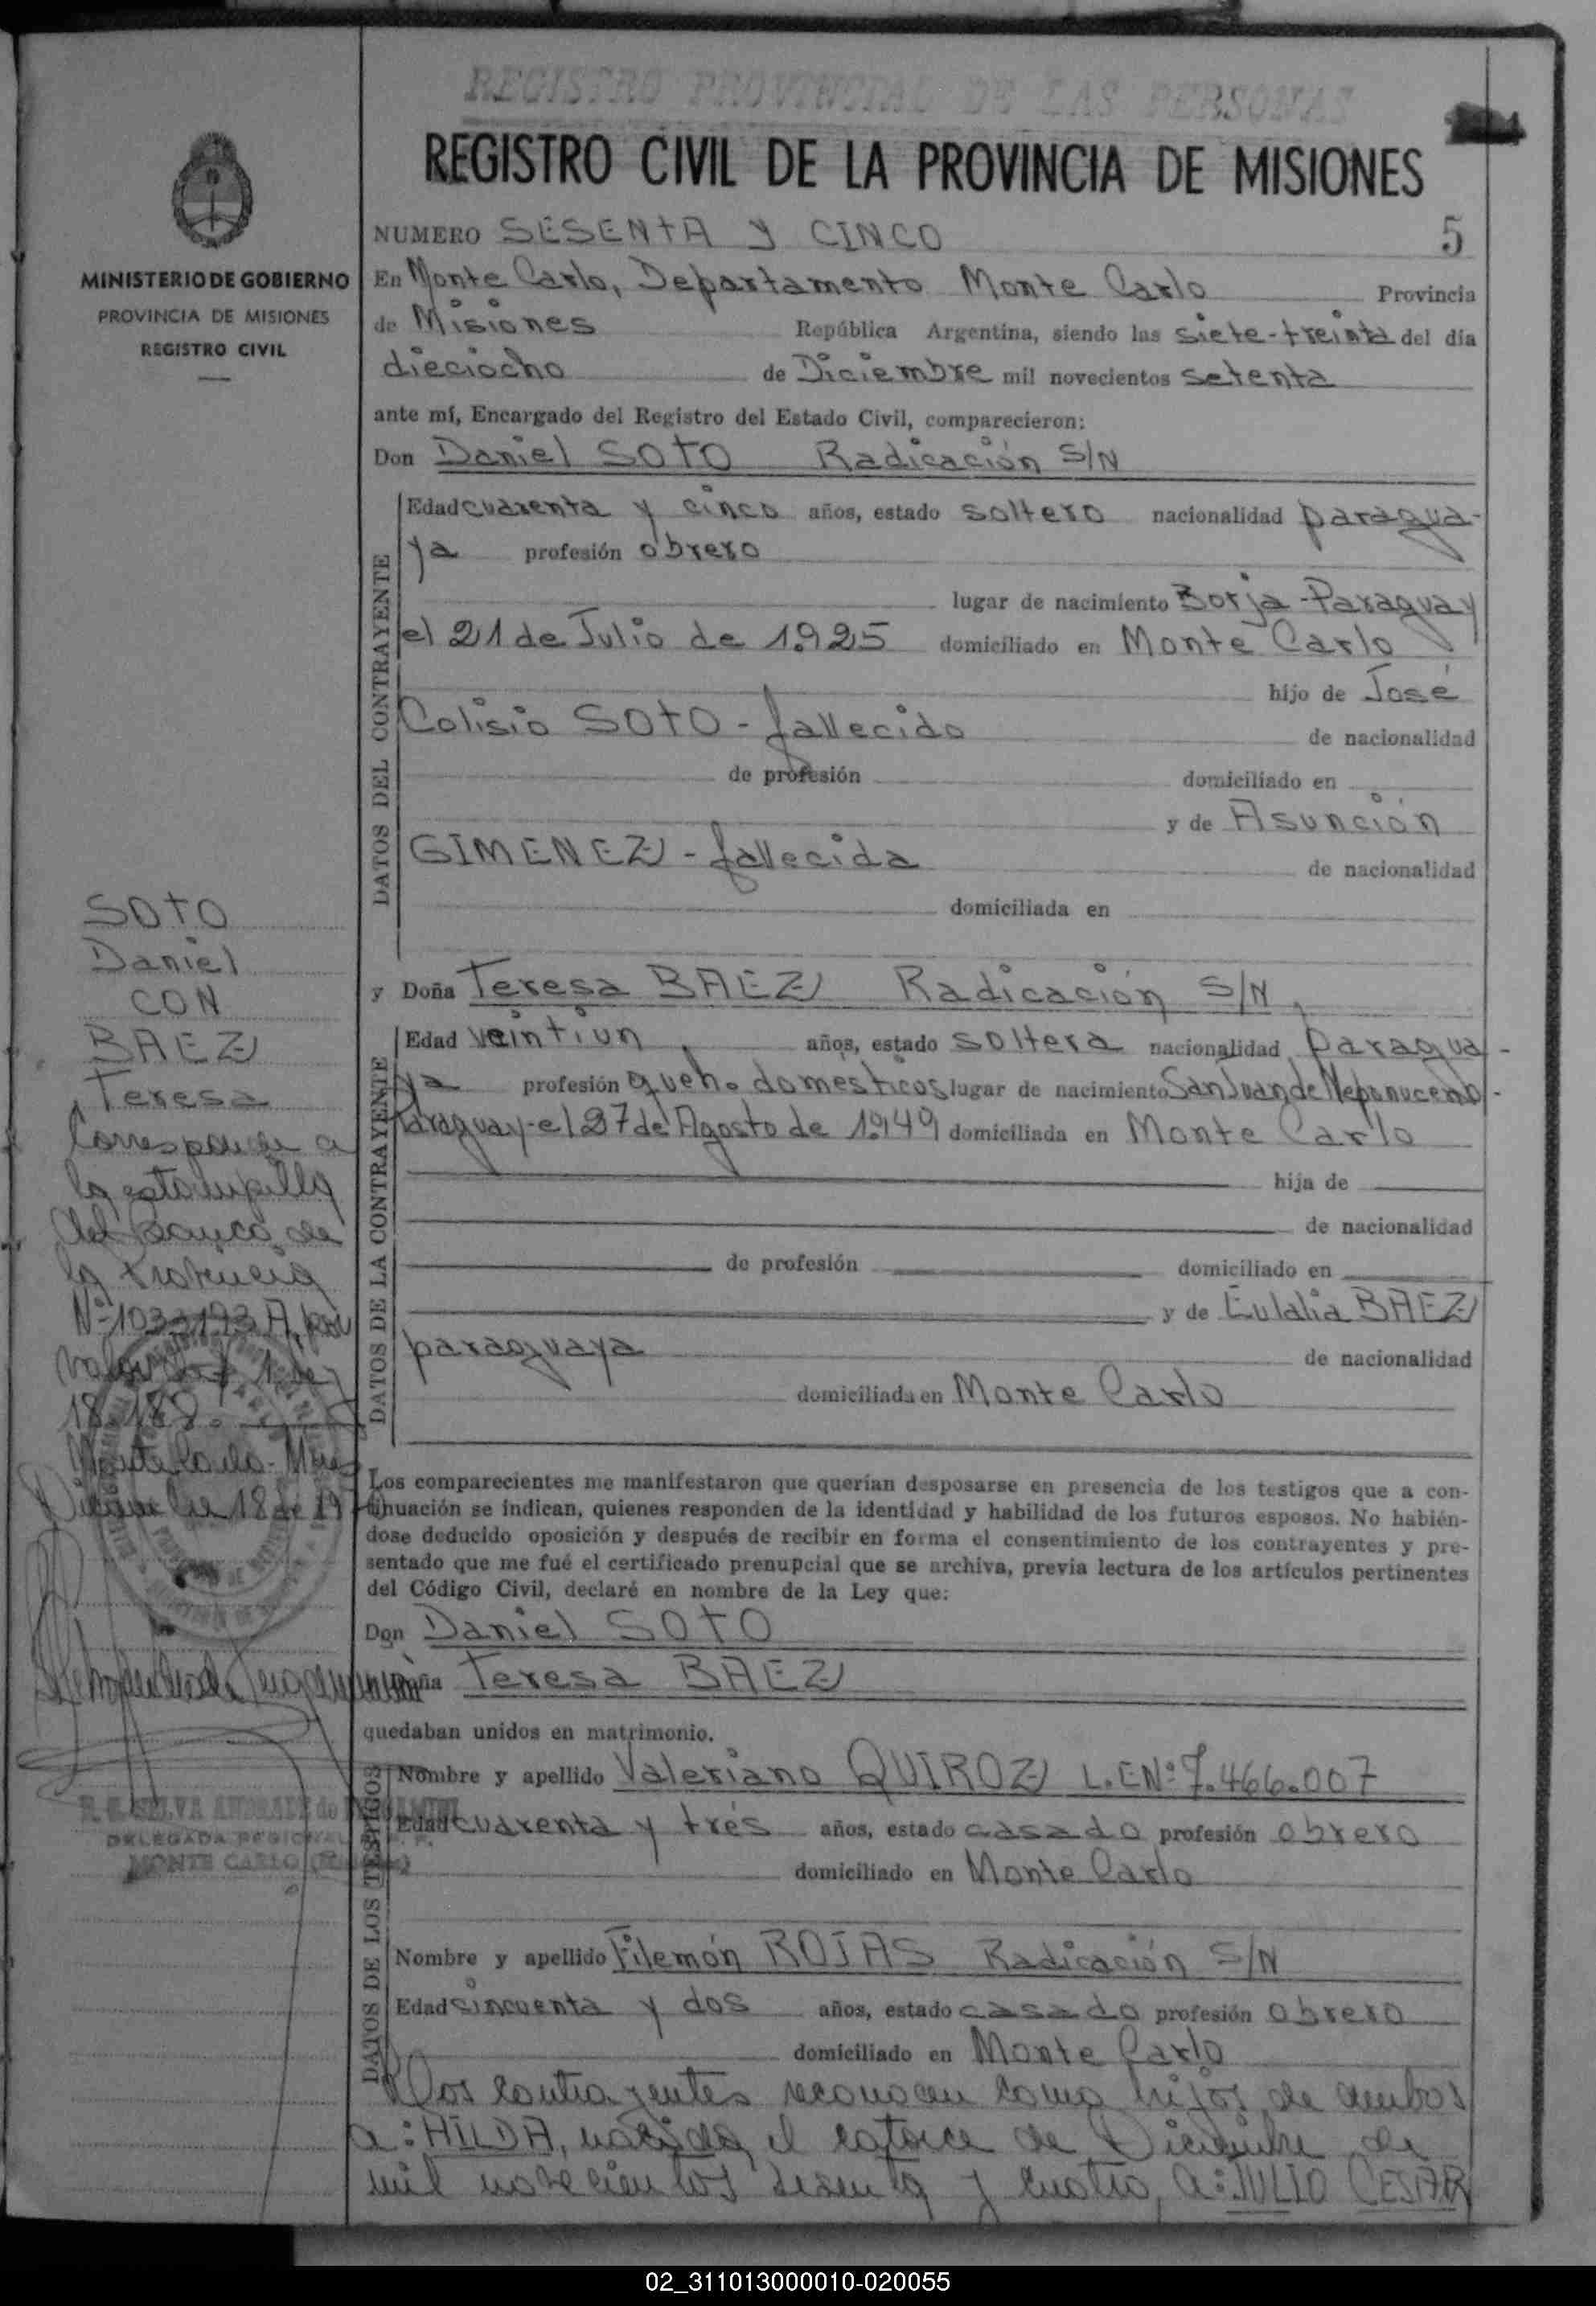 REGISTRO PROVINCIAL DE LAS PERSONAS
REGISTRO CIVIL DE LA PROVINCIA DE MISIONES
MINISTERIO DE GOBIERNO
PROVINCIA DE MISIONES
REGISTRO CIVIL
NUMERO SESENTA Y CINCO 5
En Monte Carlo, Departamento Monte Carlo Provincia
de Misiones República Argentina, siendo las siete-treinta del día
dieciocho de Diciembre mil novecientos setenta
ante mí, Encargado del Registro del Estado Civil, comparecieron:
Don Daniel SOTO Radicación S/N
DATOS DEL CONTRAYENTE
Edad cuarenta y cinco años, estado soltero nacionalidad paragua-
ya profesión obrero
lugar de nacimiento Borja-Paraguay
el 21 de Julio de 1.925 domiciliado en Monte Carlo
hijo de José
Colisio SOTO - fallecido de nacionalidad
de profesión domiciliado en
y de Asunción
GIMENEZ - fallecida de nacionalidad
domiciliada en
SOTO
Daniel
CON
BAEZ
Teresa
Corresponde a
la estampilla
del Banco de
la Provincia
Nº 1033193 A, por
valor de $ 1 Ley
18.188.
Monte Carlo - Mnes
Diciembre 18 de 19
y Doña Teresa BAEZ Radicación S/N,
DATOS DE LA CONTRAYENTE
Edad veintiun años, estado soltera nacionalidad paragua-
ya profesión queh. domésticos lugar de nacimiento San Juan de Nepomuceno-
Paraguay-el 27 de Agosto de 1.949 domiciliada en Monte Carlo
hija de
de nacionalidad
de profesión domiciliado en
y de Eulalia BAEZ
paraguaya de nacionalidad
domiciliada en Monte Carlo
Los comparecientes me manifestaron que querían desposarse en presencia de los testigos que a con-
tinuación se indican, quienes responden de la identidad y habilidad de los futuros esposos. No habién-
dose deducido oposición y después de recibir en forma el consentimiento de los contrayentes y pre-
sentado que me fué el certificado prenupcial que se archiva, previa lectura de los artículos pertinentes
del Código Civil, declaré en nombre de la Ley que:
Don Daniel SOTO
Doña Teresa BAEZ
quedaban unidos en matrimonio.
SELVA ANDRADE de
DELEGADA REGIONAL R. P. P.
MONTE CARLO (Misiones)
DATOS DE LOS TESTIGOS
Nombre y apellido Valeriano QUIROZ L.E.Nº 7.466.007
Edad cuarenta y trés años, estado casado profesión obrero
domiciliado en Monte Carlo
Nombre y apellido Filemón ROJAS Radicación S/N
Edad sincuenta y dos años, estado casado profesión obrero
domiciliado en Monte Carlo
Los contrayentes reconocen como hijos de ambos
a: HILDA, nacida el catorce de Diciembre de
mil novecientos sesenta y cuatro, a: JULIO CESAR
02_311013000010-020055